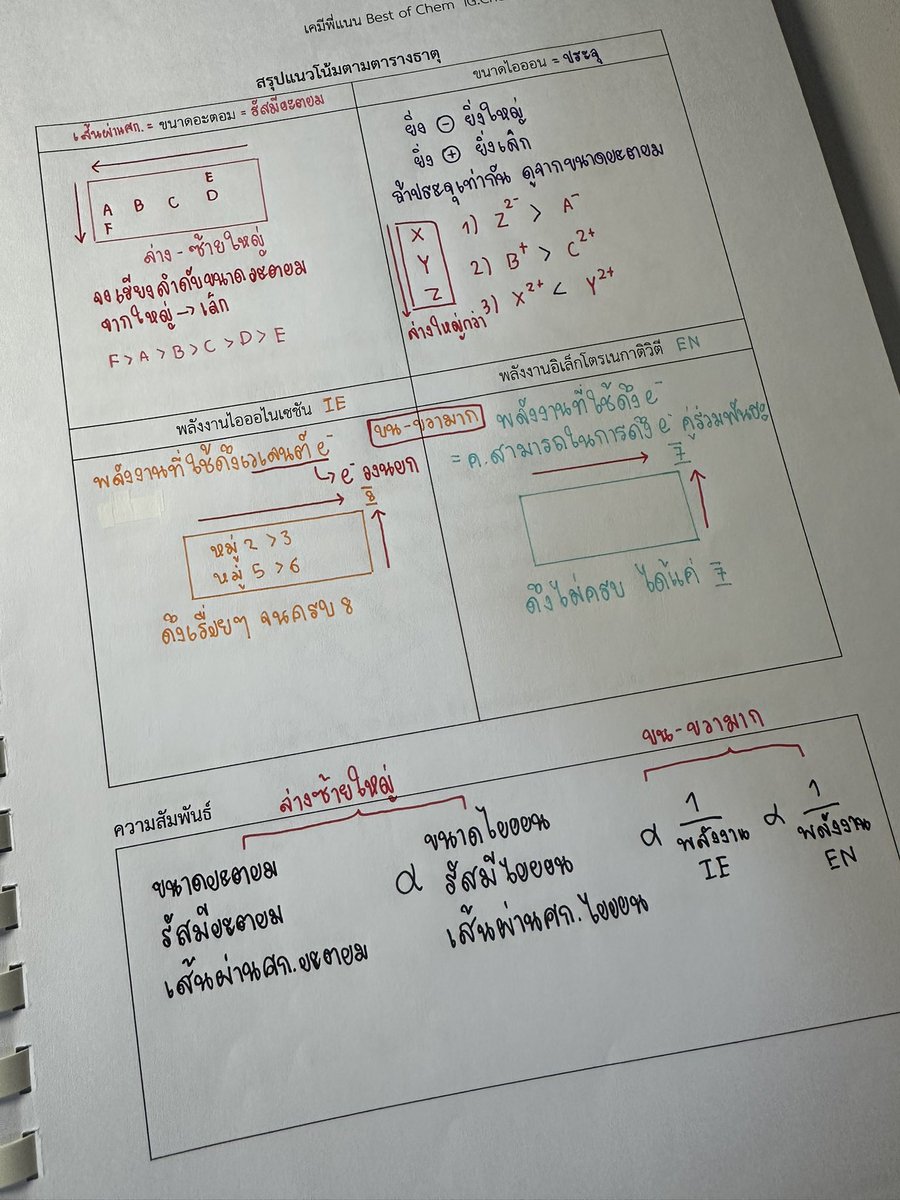 เคมีพี่แนน Best of Chem
สรุปแนวโน้มตามตารางธาตุ
เส้นผ่านศก. = ขนาดอะตอม = รัสมีอะตอม
A B C D E
F
ล่าง - ซ้ายใหญ่
จงเรียงลำดับขนาดอะตอม
จากใหญ่ → เล็ก
F > A > B > C > D > E
ขนาดไอออน = ประจุ
ยิ่ง ⊖ ยิ่งใหญ่
ยิ่ง ⊕ ยิ่งเล็ก
ถ้าประจุเท่ากัน ดูจากขนาดอะตอม
X
Y
Z
ล่างใหญ่กว่า
1) Z²⁻ > A⁻
2) B⁺ > C²⁺
3) X²⁺ < Y²⁺
พลังงานไอออไนเซชัน IE
บน-ขวามาก
พลังงานที่ใช้ดึงเวเลนต์ e⁻
↳ e⁻ วงนอก
8
หมู่ 2 > 3
หมู่ 5 > 6
ดึงเรื่อยๆ จนครบ 8
พลังงานอิเล็กโตรเนกาติวิตี EN
พลังงานที่ใช้ดึง e⁻
= ค.สามารถในการดึง e⁻ คู่ร่วมพันธะ
7
ดึงไม่ครบ ได้แค่ 7
ความสัมพันธ์
ล่างซ้ายใหญ่
บน-ขวามาก
ขนาดอะตอม
รัสมีอะตอม
เส้นผ่านศก.อะตอม
∝
ขนาดไอออน
รัสมีไอออน
เส้นผ่านศก.ไอออน
∝ 1/พลังงาน IE ∝ 1/พลังงาน EN